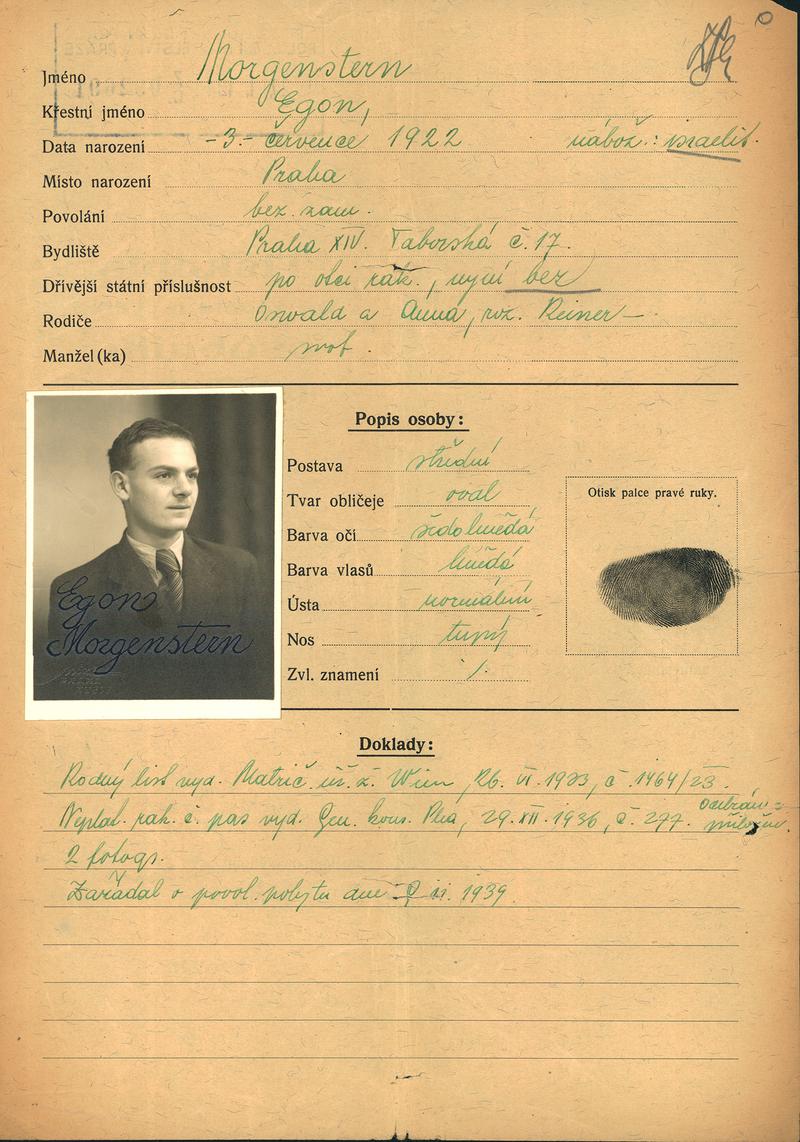 Jméno Morgenstern
Křestní jméno Egon,
Data narození -3- července 1922 nábož.: israelit.
Místo narození Praha
Povolání bez zam.
Bydliště Praha XIV. Táborská č. 17.
Dřívější státní příslušnost po otci rak., nyní bez
Rodiče Oswald a Anna, roz. Reiner —
Manžel (ka) svob.
Popis osoby:
Postava střední
Tvar obličeje oval
Barva očí šedohnědá
Barva vlasů hnědá
Ústa normální
Nos tupý
Zvl. znamení /.
Otisk palce pravé ruky.
Egon
Morgenstern
Doklady:
Rodný list vyd. Matrič. úř. z. Wien, 26. VI. 1923, č 1464/23.
Neplat. rak. c. pas vyd. Gen. kons. Pha, 29. XII. 1936, č. 277.
2 fotogr.
Zažádal o povol. pobytu dne 9 II. 1939